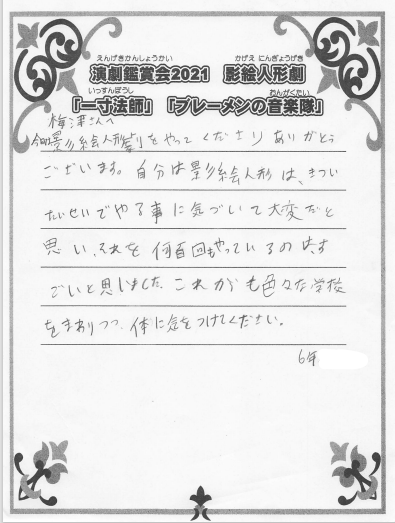 えんげきかんしょうかい かげえ にんぎょうげき
演劇鑑賞会2021 影絵人形劇
いっすんぼうし おんがくたい
『一寸法師』『ブレーメンの音楽隊』
梅津さんへ
今回影絵人形劇をやってくださりありがとう
ございます。自分は影絵人形は、きつい
たいせいでやる事に気づいて大変だと
思い、それを何百回もやっているのは、す
ごいと思いました。これからも色々な学校
をまわりつつ、体に気をつけてください。
6年